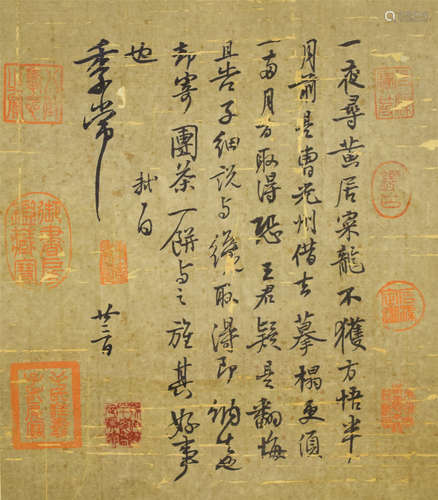 一夜尋黃居寀龍不獲方悟半
月前是曹光州借去摹搨更須
一兩月方取得恐王君疑是翻悔
且告子細說與纔取得即納去也
却寄團茶一餅與之旌其好事
也 軾白
季常
廿三日
御書房鑑藏寶